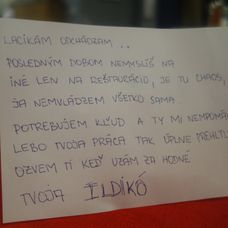 LACIKÁM ODCHÁDZAM ...
POSLEDNÝM DOBOM NEMYSLÍŠ NA
INÉ LEN NA REŠTAURÁCIU, JE TU CHAOS,
JA NEMVLÁDZEM VŠETKO SAMA.
POTREBUJEM KĽUD A TY MI NEPOMÁ
LEBO TVOJA PRÁCA ŤAK ÚPLNE PREHLTL
OZVEM TI KEĎ UZÁM ZA HODNÉ
TVOJA ILDIKÓ